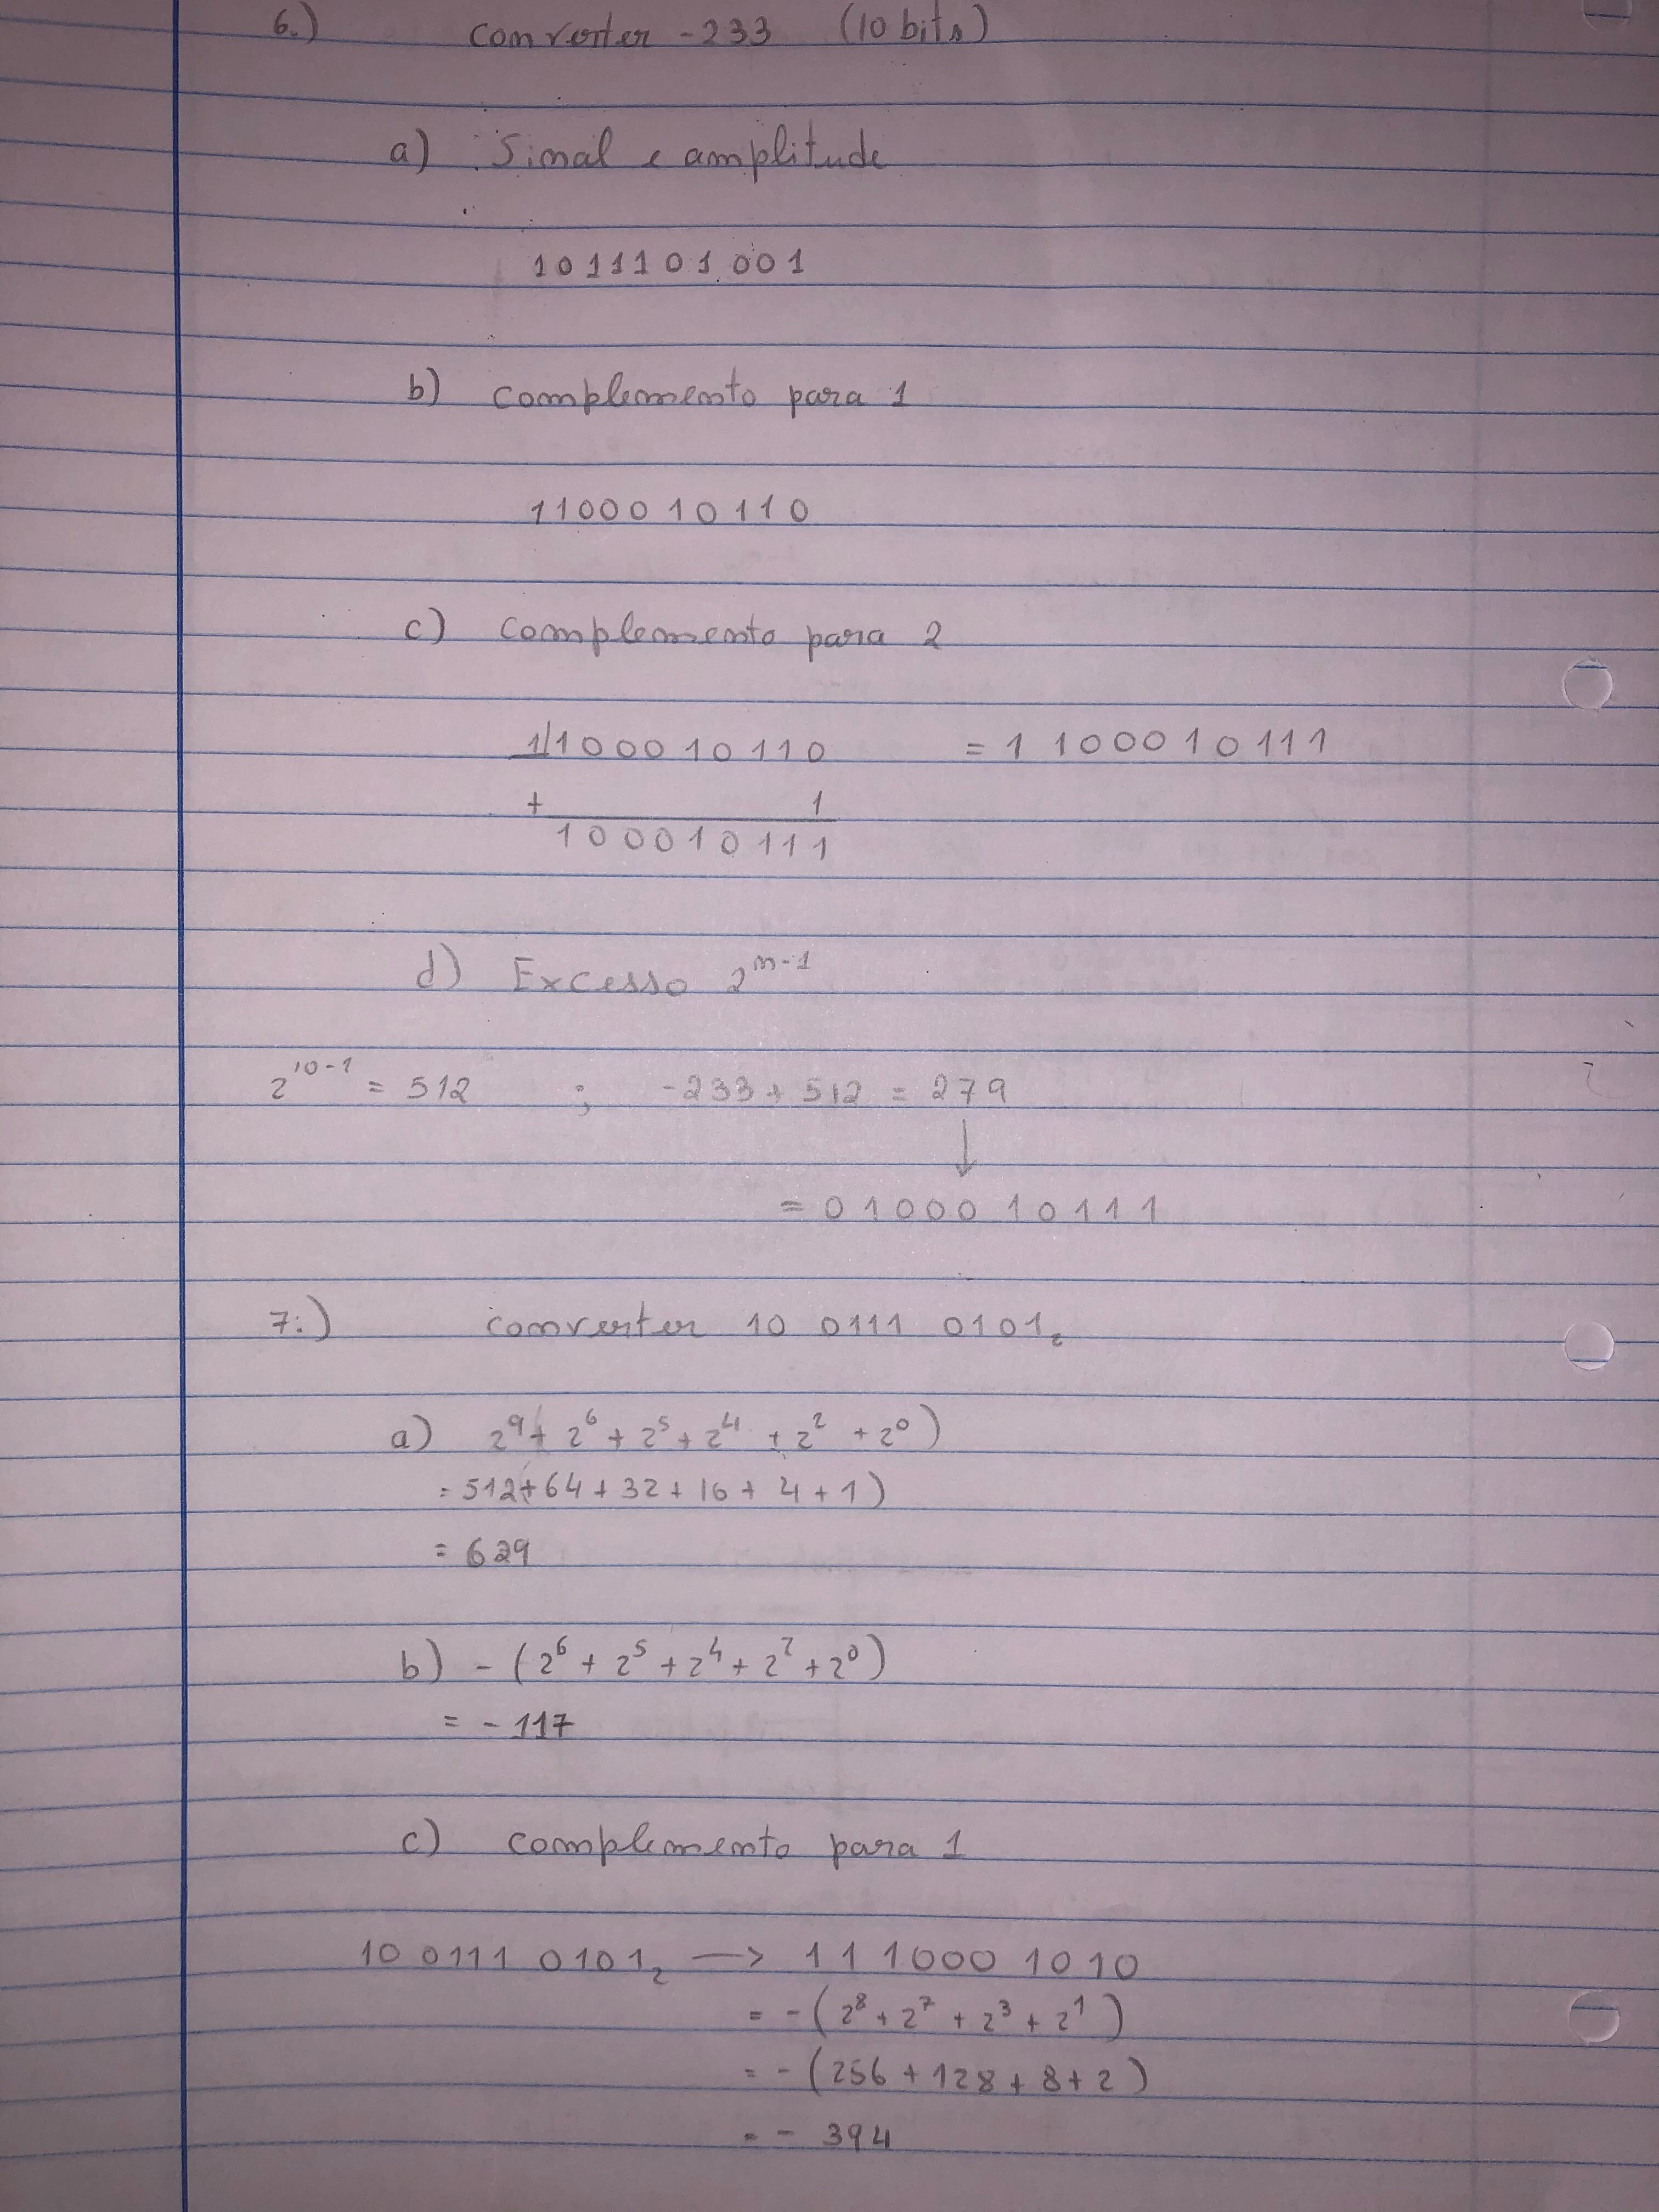 6.) converter -233 (10 bits)
a) Sinal e amplitude
1011101001
b) complemento para 1
1100010110
c) complemento para 2
1|100010110 = 1 100010111
+ 1
100010111
d) Excesso 2^(n-1)
2^(10-1) = 512 ; -233 + 512 = 279
↓
= 0100010111
7.) converter 10 0111 0101₂
a) 2⁹ + 2⁶ + 2⁵ + 2⁴ + 2² + 2⁰)
= 512 + 64 + 32 + 16 + 4 + 1)
= 629
b) - (2⁶ + 2⁵ + 2⁴ + 2² + 2⁰)
= - 117
c) complemento para 1
10 0111 0101₂ → 11 1000 1010
= - (2⁸ + 2⁷ + 2³ + 2¹)
= - (256 + 128 + 8 + 2)
= - 394